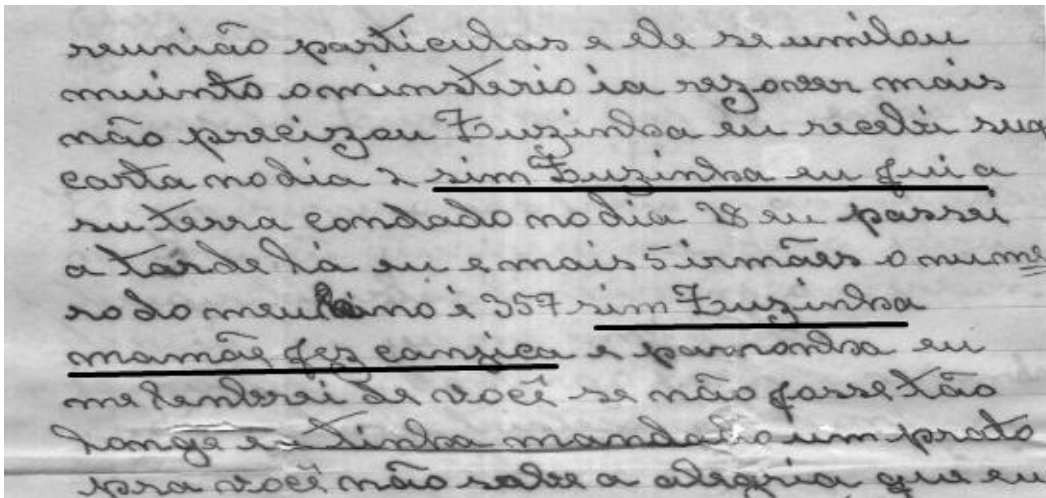 reunião particular e ele se umilou
muinto o ministerio ia rezover mais
não precizou Zuzinha eu recebi sua
carta no dia 2 sim Zuzinha eu fui a
su terra condado no dia 28 eu passei
a tarde lá eu e mais 5 irmães o nume
ro do meu ino é 357 sim Zuzinha
mamãe fez canzica e pamonha eu
me lembrei de você se não fosse tão
longe eu tinha mandado um prato
pra você não sabe a alegria que eu